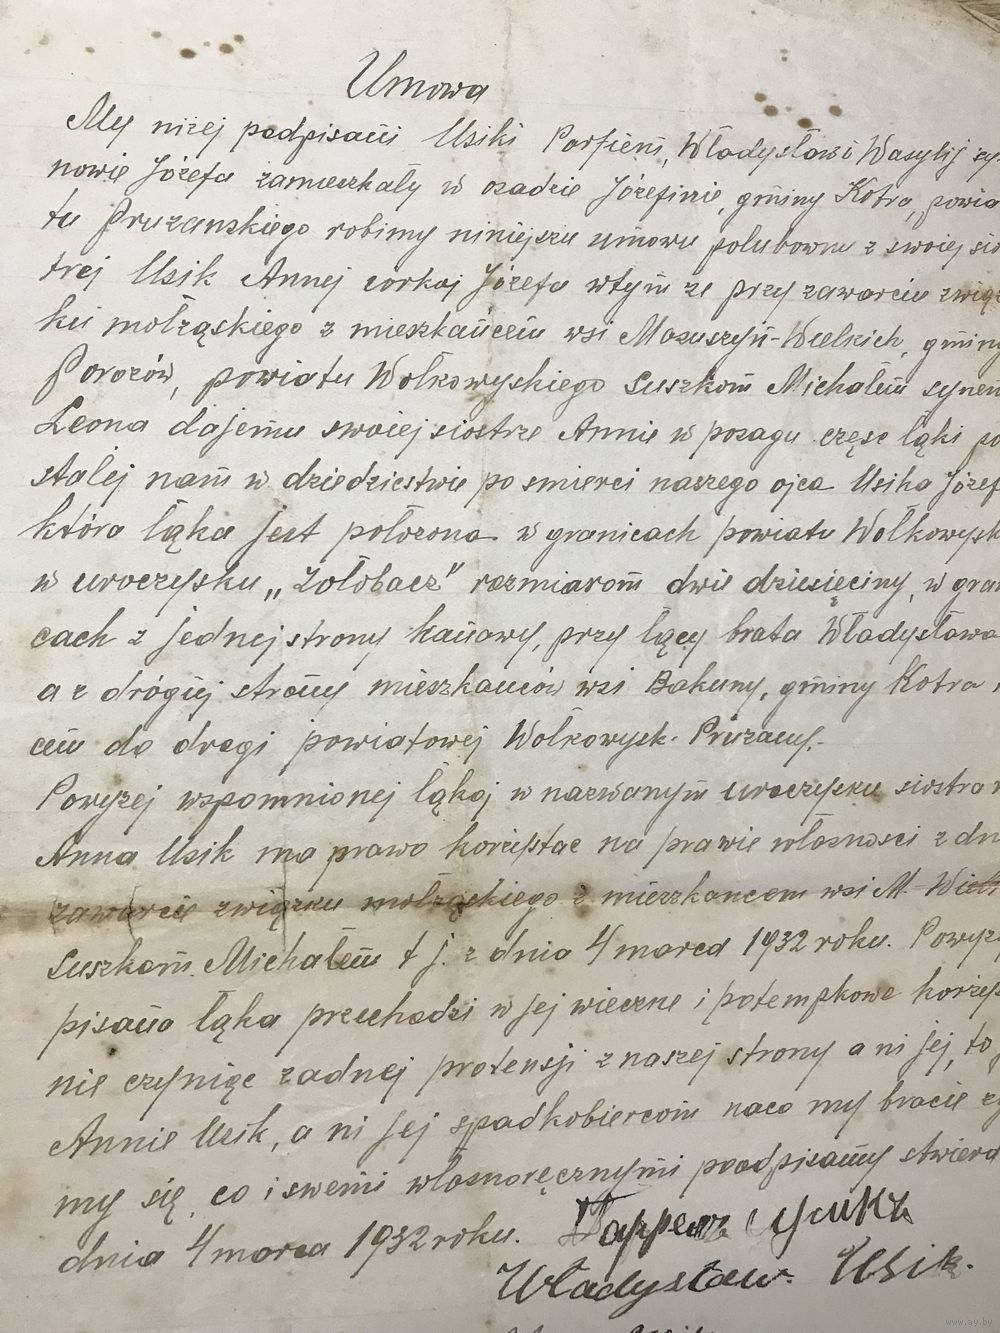 Umowa
My niżej podpisani Usiki Parfieni, Władysław i Wasylij sy-
nowie Józefa zamieszkały w osadzie Józefinie, gminy Kotra, powia
tu Prużanskiego robimy niniejszu umowu polubownu z swoiej sios
trej Usik Annej corkoj Józefa wtym ze przy zawarciu związ
ku małząskiego z mieszkańcem wsi Masuszyń-Wielkich, gminy
Porozów, powiatu Wołkowyskiego Suszkom Michałem synem
Leona dajemu swoiej siostrze Annie w posagu częsc łąki po
stalej nam w dziedzictwie po smierci naszego ojca Usika Józef
która łąka jest połozona w granicach powiatu Wołkowysk
w uroczysku „Zołobacz" rozmiarom dwie dziesięciny, w gran
cach z jednej strony kanawy, przy łący brata Władysława
a z drógiej strony mieszkanców wsi Bakuny, gminy Kotra
cem do drogi powiatowej Wołkowysk-Pruzany.-
Powyzej wspomnionej łąkoj w nazwanym uroczysku siostra n
Anna Usik ma prawo korzystac na prawie własnosci z dn
zawarcie związku małząskiego z mieszkancem wsi M-Wielk
Suszkom Michałem t j. z dnia 4 marca 1932 roku. Powyz
pisana łąka przechodzi w jej wieczne i potempkowe korzys
nie czyniąc zadnej pretensji z naszej strony a ni jej, to j
Annie Usik, a ni jej spadkobiercom naco my bracie z
my się, co i swemi własnoręcznymi poodpisamy stwierd
dnia 4 marca 1932 roku. Парфен Усикъ
Władysław Usik.
www.ay.by